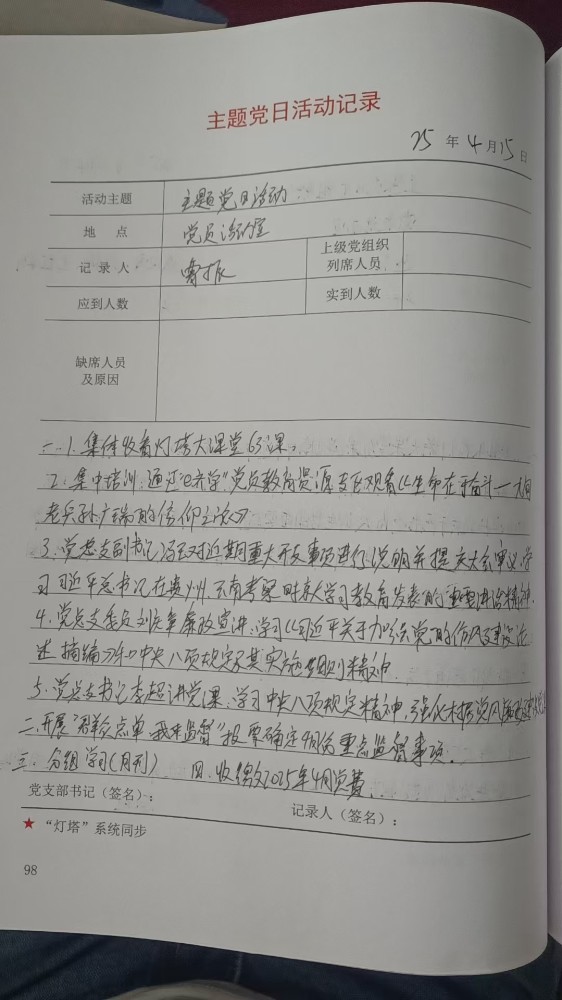 主题党日活动记录
25 年 4 月 15 日
活动主题 主题党日活动
地 点 党员活动室
记 录 人 上级党组织
列席人员
应到人数 实到人数
缺席人员
及原因
一、1.集体收看灯塔大课堂63课。
2.集中培训:通过"e支学"党员教育资源专区观看《生命在于奋斗一
老兵孙广瑞的信仰之旅》
3.党总支副书记 对近期重大开支事项进行说明并提交大会审议,学
习习近平总书记在贵州、云南考察时 学习教育发表的重要讲话精神.
4.党总支委员刘 廉政宣讲:学习《习近平关于加强党的作风建设论
述摘编》和中央八项规定及其实施细则精神
5.党总支书记李超讲党课:学习中央八项规定精神,强化 党风廉政
二、开展"群众点单、我来监督"投票确定4月份重点监督事项.
三、分组学习(月刊) 四、收缴2025年4月党费.
党支部书记(签名): 记录人(签名):
★ "灯塔"系统同步
98